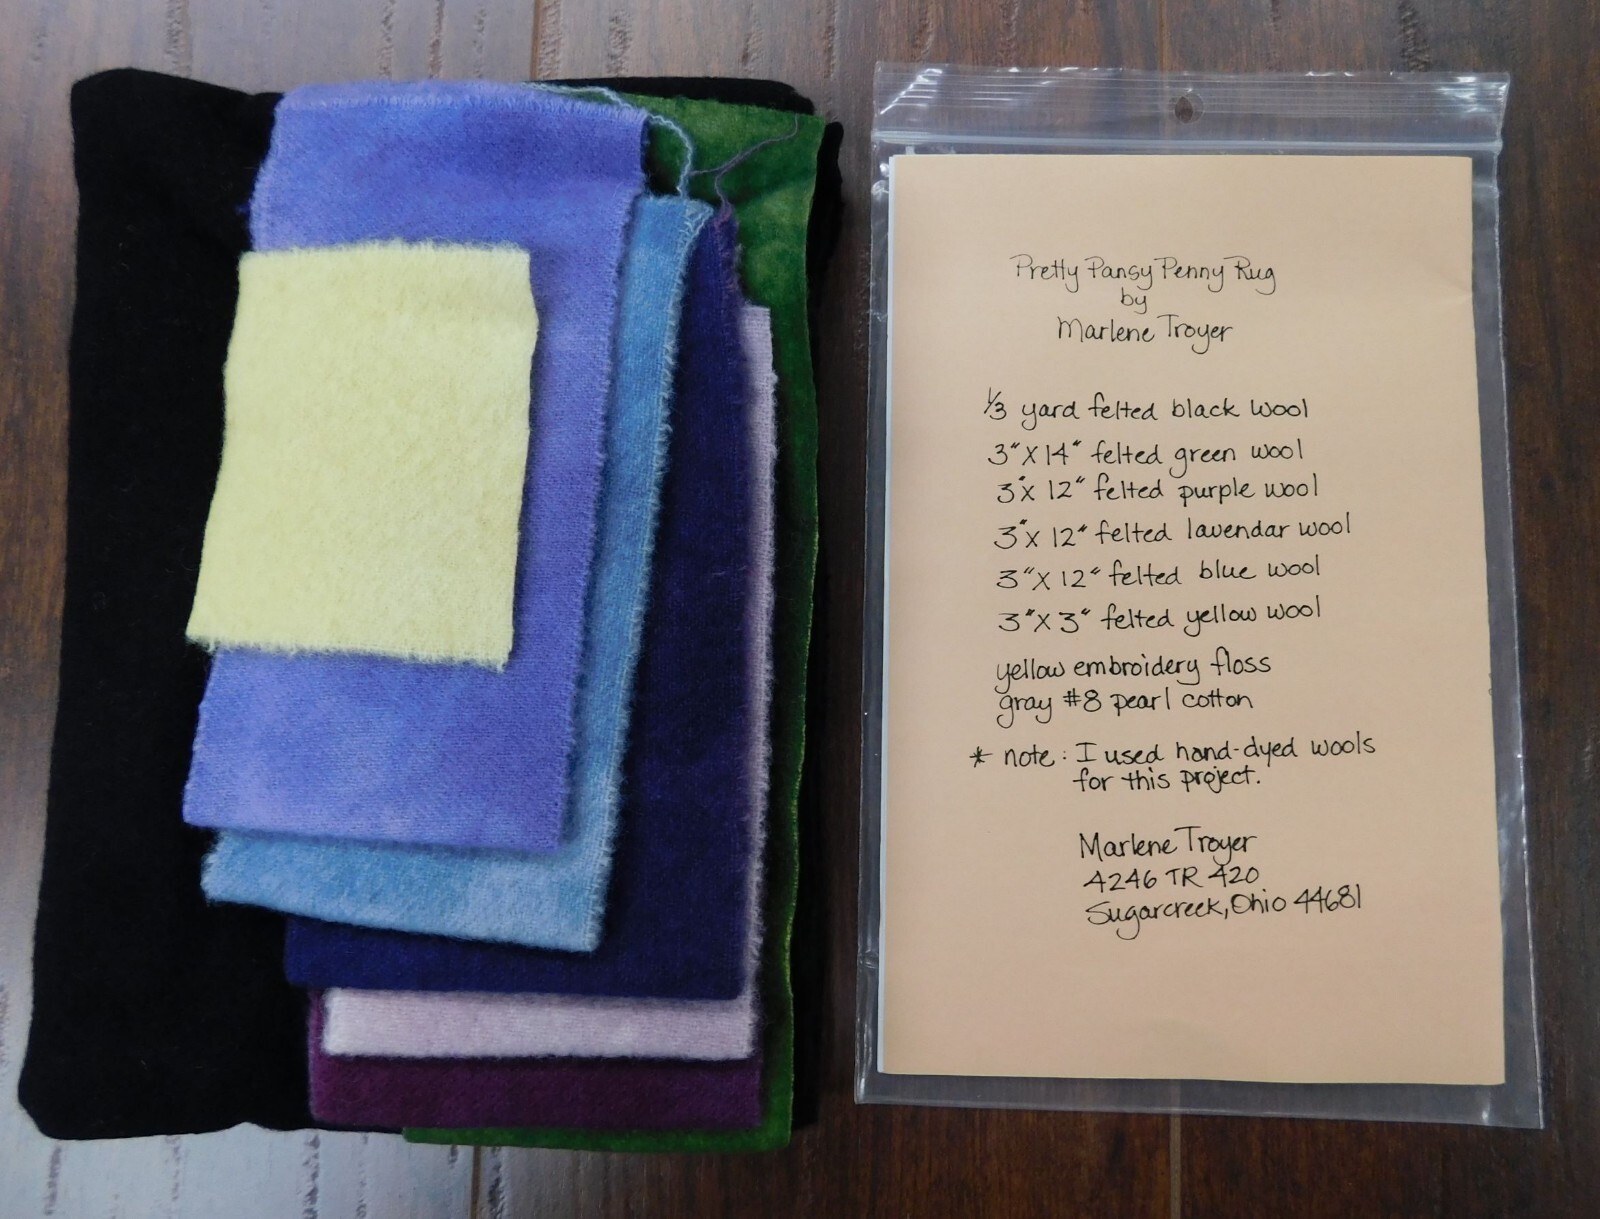 Pretty Pansy Penny Rug
by
Marlene Troyer
1/3 yard felted black wool
3" X 14" felted green wool
3" X 12" felted purple wool
3" X 12" felted lavendar wool
3" X 12" felted blue wool
3" X 3" felted yellow wool
yellow embroidery floss
gray #8 pearl cotton
* note: I used hand-dyed wools
for this project.
Marlene Troyer
4246 TR 420
Sugarcreek, Ohio 44681